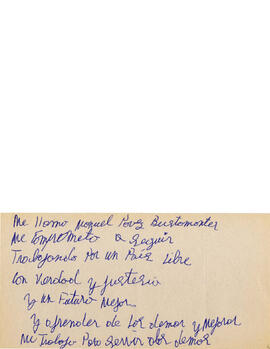 Me llamo Moguel Povez Bustomonter
Me Comprometo a seguir
Trabajando por un País Libre
Con Verdad y justicia
y un Futuro Mejor
y aprender de los demas y Mejorar
Mi Trabajo Para servir a los demas